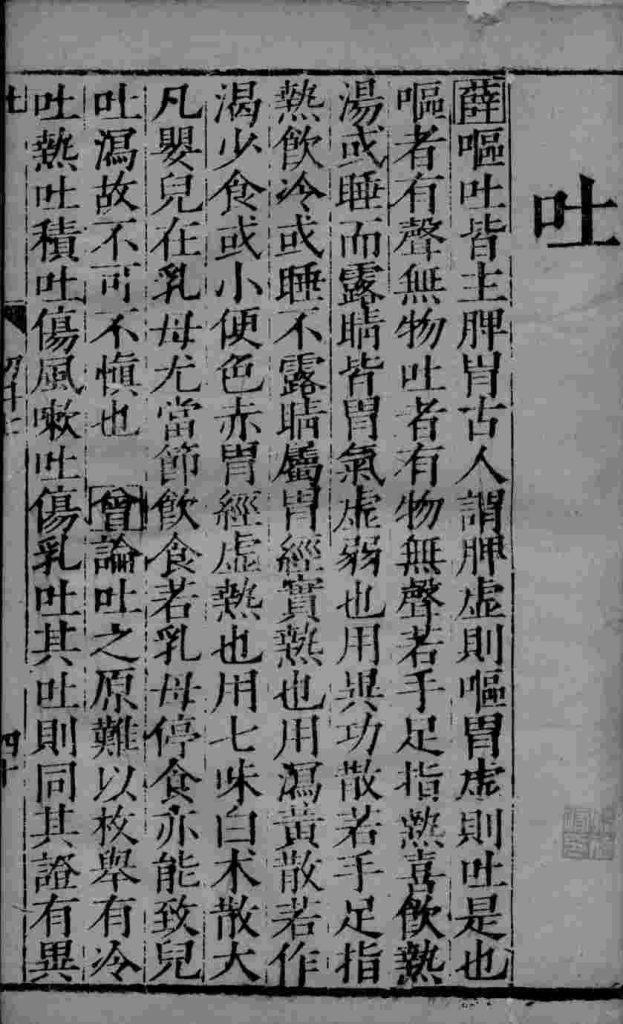 吐
薛嘔吐皆主脾胃古人謂脾虛則嘔胃虛則吐是也
嘔者有聲無物吐者有物無聲若手足指熱喜飲熱
湯或睡而露睛皆胃氣虛弱也用異功散若手足指
熱飲冷或睡不露睛屬胃經實熱也用瀉黃散若作
渴少食或小便色赤胃經虛熱也用七味白术散大
凡嬰兒在乳母尤當節飲食若乳母停食亦能致兒
吐瀉故不可不慎也 曾論吐之原難以枚舉有冷
吐熱吐積吐傷風嗽吐傷乳吐其吐則同其證有異
四十